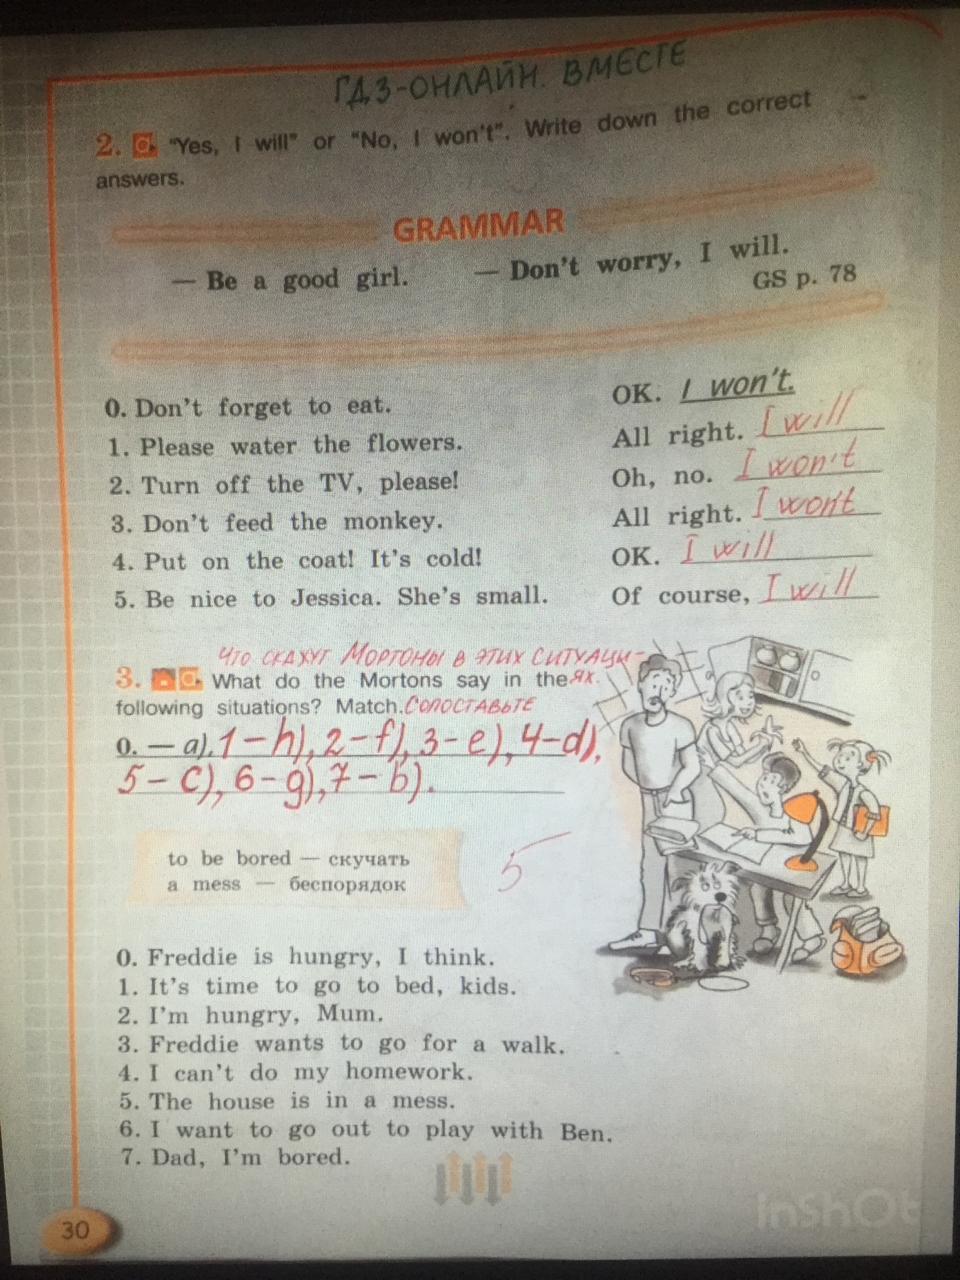 ГДЗ-ОНЛАЙН. ВМЕСТЕ
2. a. "Yes, I will" or "No, I won't". Write down the correct
answers.
GRAMMAR
— Be a good girl. — Don't worry, I will.
GS p. 78
0. Don't forget to eat. OK. I won't.
1. Please water the flowers. All right. I will
2. Turn off the TV, please! Oh, no. I won't
3. Don't feed the monkey. All right. I won't
4. Put on the coat! It's cold! OK. I will
5. Be nice to Jessica. She's small. Of course, I will
ЧТО СКАЖУТ МОРТОНЫ В ЭТИХ СИТУАЦИ-
3. a. What do the Mortons say in the ЯХ.
following situations? Match. СОПОСТАВЬТЕ
0. — a), 1-h), 2-f), 3-e), 4-d),
5-c), 6-g), 7-b).
to be bored — скучать
a mess — беспорядок
5
0. Freddie is hungry, I think.
1. It's time to go to bed, kids.
2. I'm hungry, Mum.
3. Freddie wants to go for a walk.
4. I can't do my homework.
5. The house is in a mess.
6. I want to go out to play with Ben.
7. Dad, I'm bored.
30
InShOt